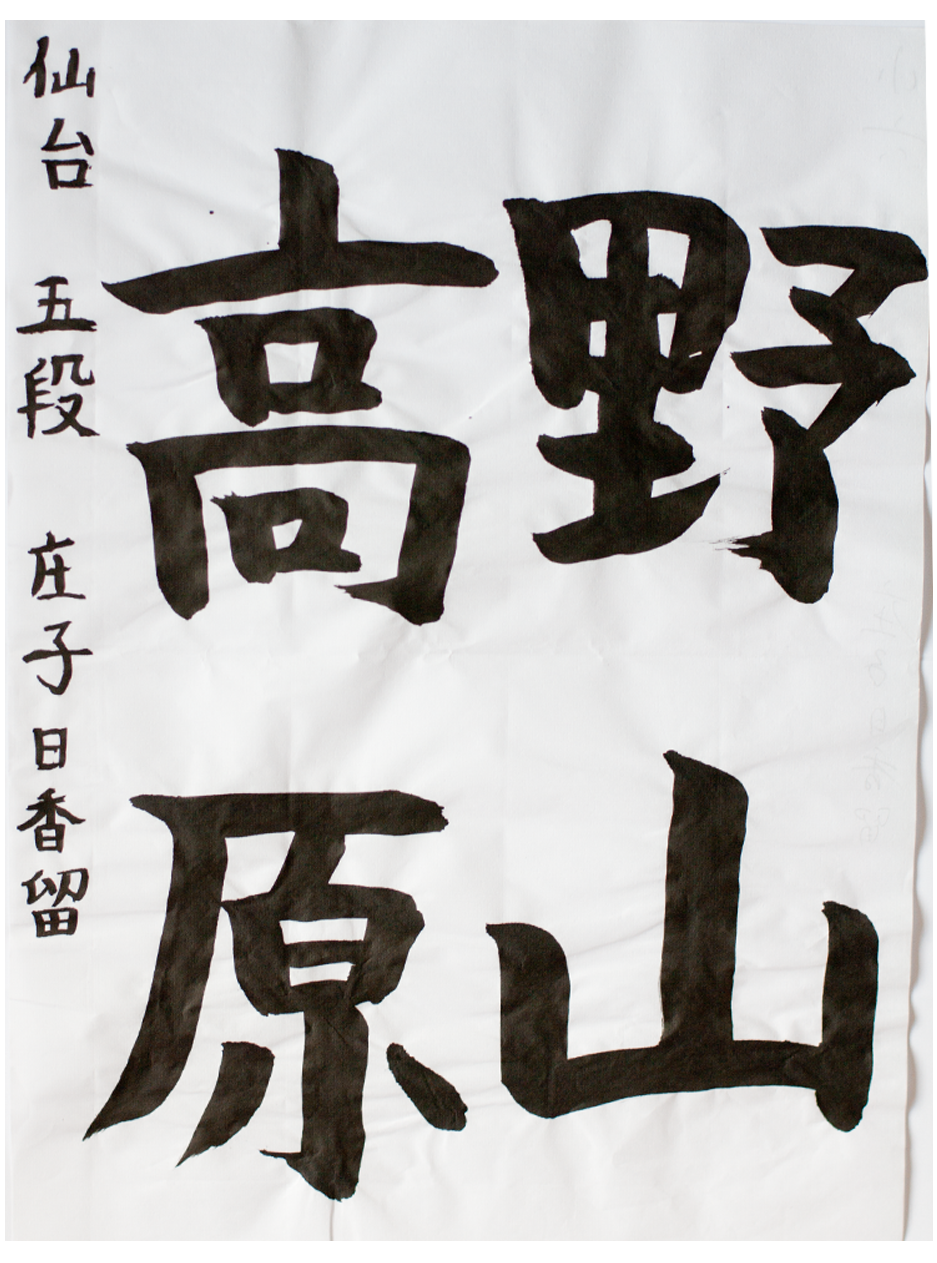 野山
高原
仙台 五段 庄子日香留